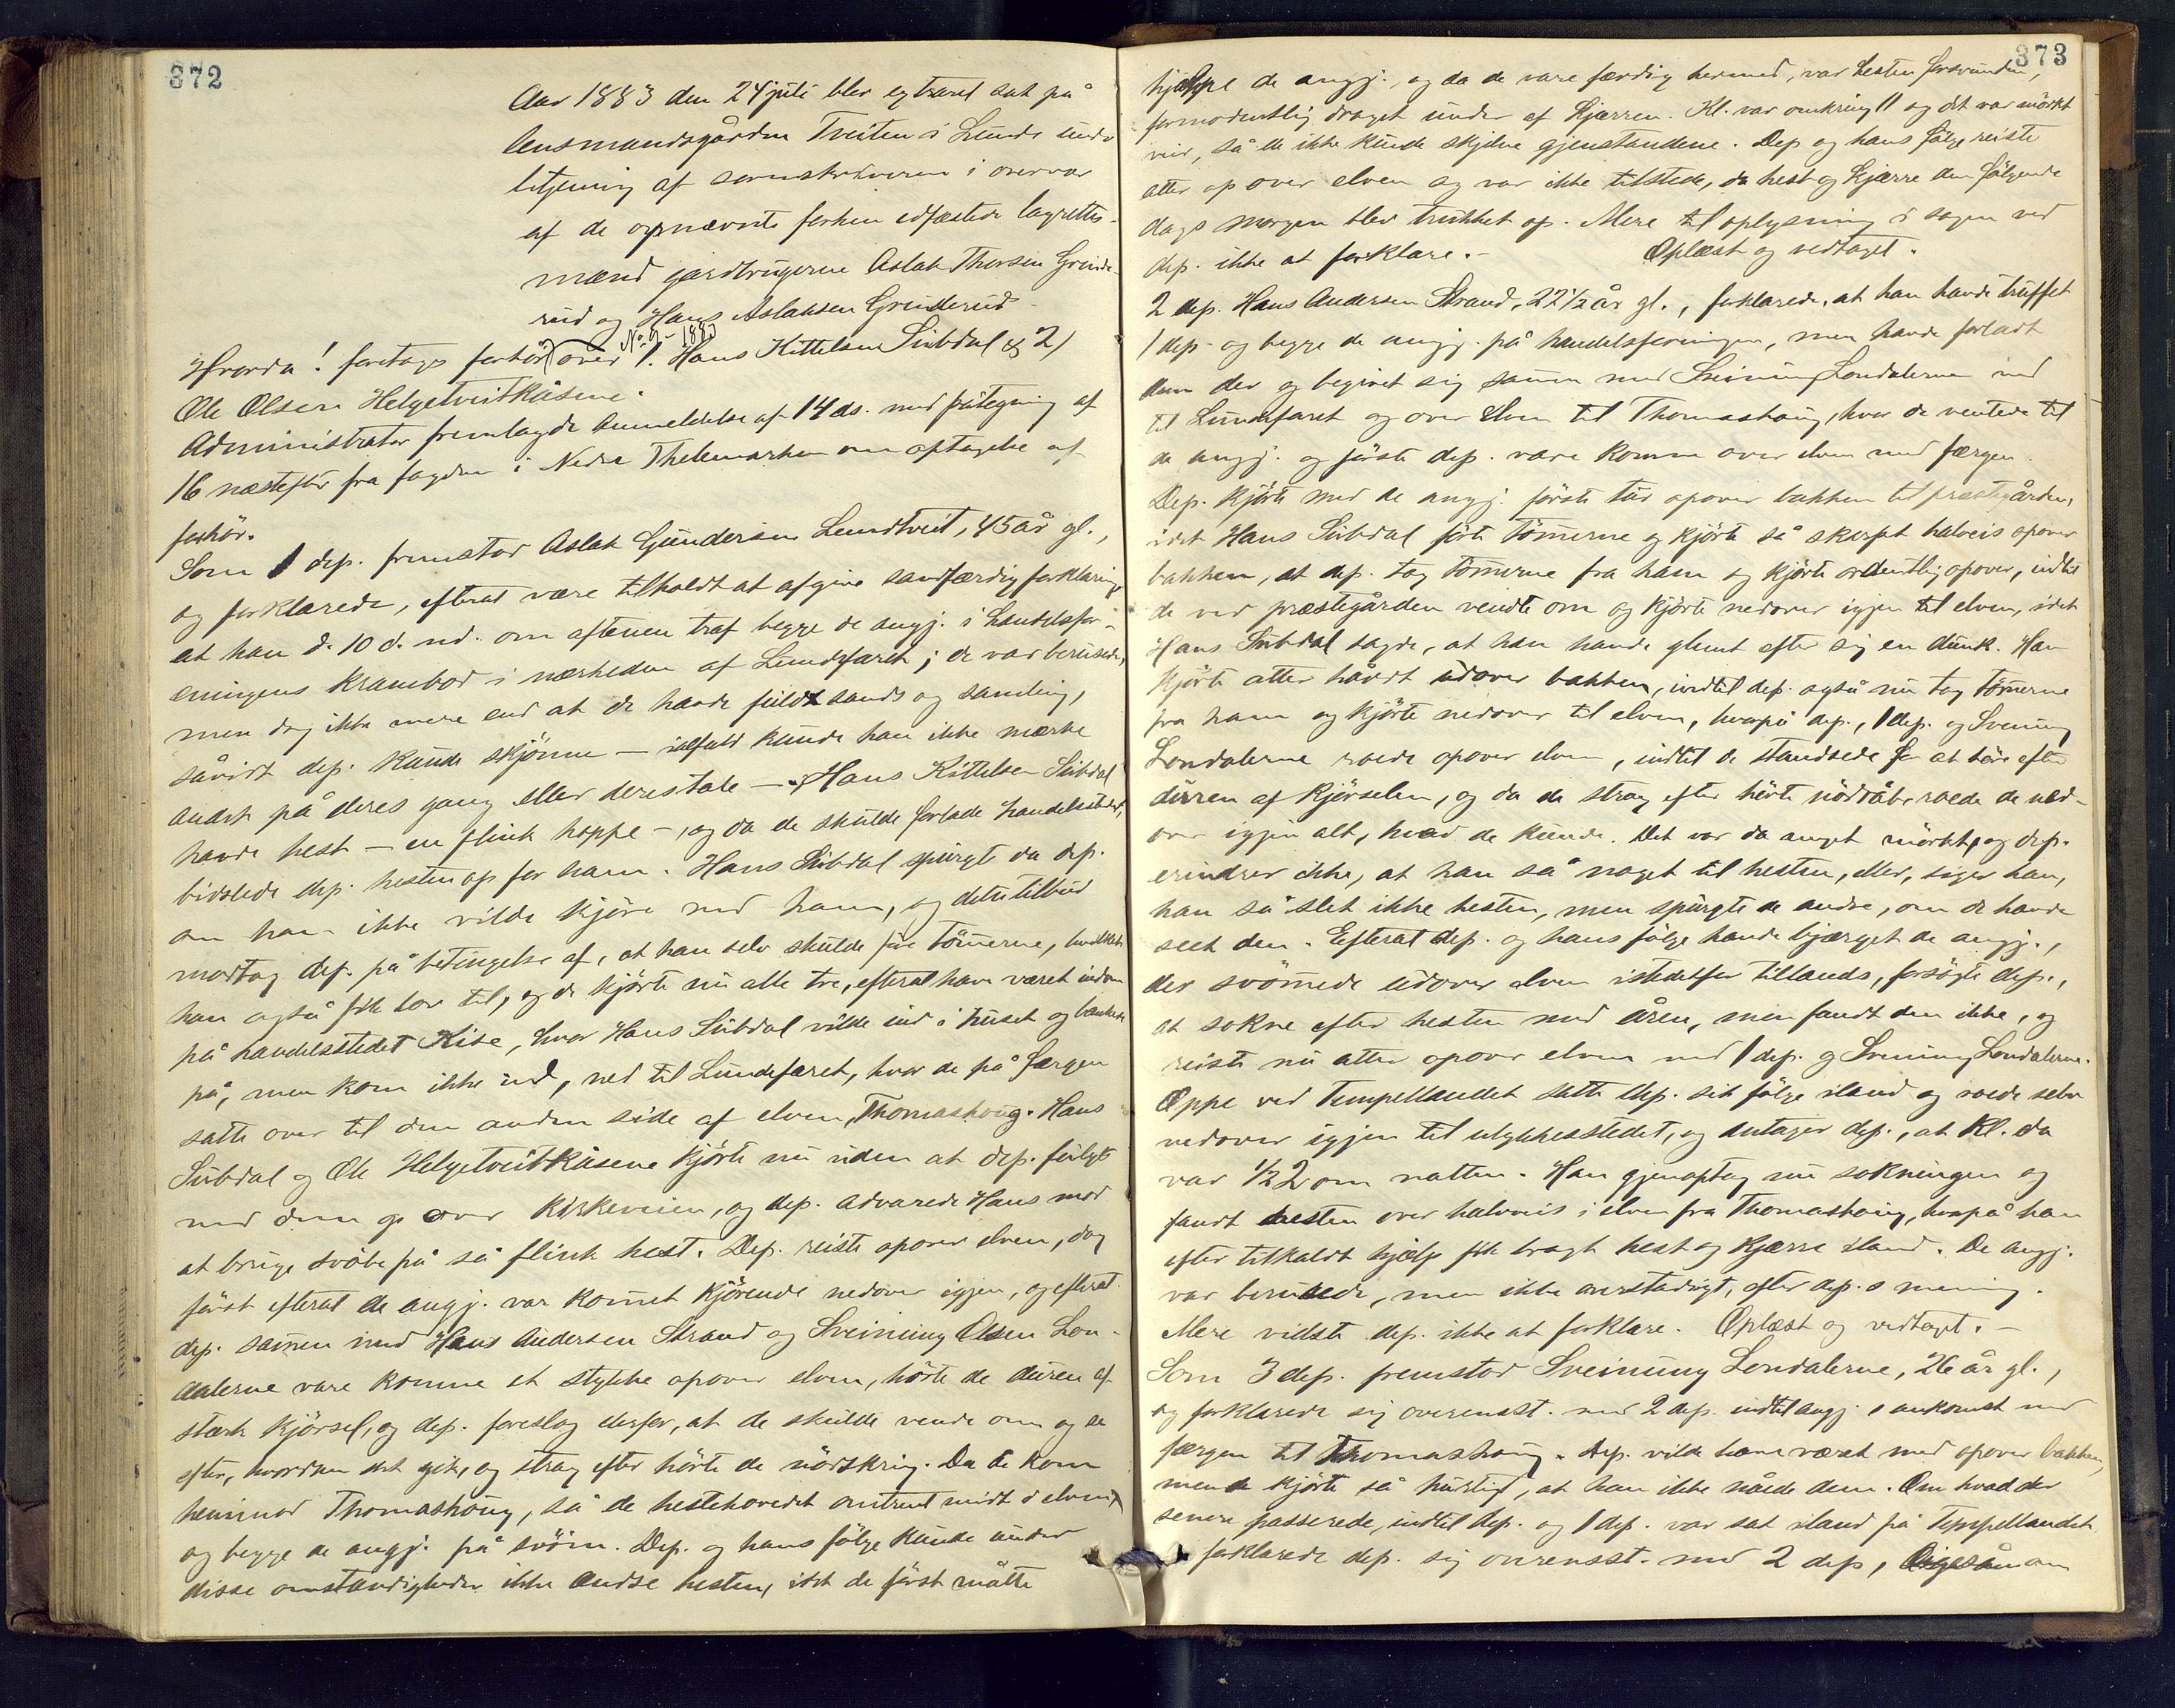 372
Aar 1883 den 24 juli blev extraret sat på
lensmandsgården Tveiten i Lunde under
betjening af sorenskriveren i overvær
af de opnævnte forhen edfæstede lagrettes-
mænd gardbrugerne Aslak Thorsen Grinde-
rud og Hans Aslaksen Grinderud
No. 9 - 1883
Hvorda! foretoges forhör over 1. Hans Kittelsen Subdal og 2)
Ole Olsen Helgetveitkåsene.
Administrator fremlagde Anmeldelse af 14 ds. med påtegning af
16 næstefter fra fogden i Nedre Thelemarken om optagelse af
forhör.
Som 1 dep. fremstod Aslak Gundersen Lundtveit, 45 år gl.,
og forklarede, efterat være tilholdt at afgive sandfærdig forklaring,
at han d. 10 d. md. om aftenen traf begge de angj. i Handelsfor-
eningens Krambod i nærheden af Lundefaret; de var berusede,
men dog ikke mere end at de havde fuld sands og samling,
såvidt dep. kunde skjönne — ialfald kunde han ikke mærke
andet på deres gang eller deres tale — Hans Kittelsen Subdal
havde hest — en flink hoppe —, og da de skulde forlade handelsstedet,
bidslede dep. hesten op for ham. Hans Subdal spurgte da dep.
om han ikke vilde kjöre med ham, og dette tilbud
modtog dep. på betingelse af, at han selv skulde före tömmerne, hvilket
han også fik lov til, og de kjörte nu alle tre, efterat have været indom
på handelsstedet Kise, hvor Hans Subdal vilde ind i huset og bankede
på, men kom ikke ind, ned til Lundefaret, hvor de på færgen
satte over til den anden side af elven, Thomashaug. Hans
Subdal og Ole Helgetveitkåsene kjörte nu uden at dep. fulgte
med dem op over Kirkeveien, og dep. advarede Hans mod
at bruge svöbe på så flink hest. Dep. reiste opover elven, dog
först efterat de angj. var kommet kjörende nedover igjen, og efterat
dep. sammen med Hans Andersen Strand og Sveinung Olsen Lon-
dalerne vare komne et stykke opover elven, hörte de duren af
stærk kjörsel, og dep. foreslog derfor, at de skulde vende om og se
efter, hvordan det gik, og strax efter hörte de nödskrig. Da de kom
henimod Thomashaug, så de hestehovedet omtrent midt i elven,
og begge de angj. på svöm. Dep. og hans fölge kunde under
disse omstændigheder ikke ændse hesten, idet de först måtte
373
hjælpe de angj., og da de vare færdig hermed, var hesten forsvunden,
formodentlig draget under af Kjærren. Kl. var omkring 11 og det var mörkt
veir, så de ikke kunde skjelne gjenstandene. Dep. og hans fölge reiste
atter op over elven og var ikke tilstede, da hest og Kjærre den fölgende
dags morgen blev trukket op. Mere til oplysning i sagen ved
dep. ikke at forklare.— Oplæst og vedtaget.
2 dep. Hans Andersen Strand, 22 1/2 år gl., forklarede, at han havde truffet
1 dep. og begge de angj. på handelsforeningen, men havde forladt
dem der og begivet sig sammen med Sveinung Londalerne ned
til Lundefaret og over elven til Thomashaug, hvor de ventede til
de angj. og förste dep. vare komne over elven med færgen.
Dep. kjörte med de angj. förste tur opover bakken til præstegården,
idet Hans Subdal förte tömmerne og kjörte så skarpt halveis opover
bakken, at dep. tog tömmerne fra ham og kjörte ordentlig opover, indtil
de ved præstegården vendte om og kjörte nedover igjen til elven, idet
Hans Subdal sagde, at han havde glemt efter sig en dunk. Han
kjörte atter hårdt udover bakken, indtil dep. også nu tog tömmerne
fra ham og kjörte nedover til elven, hvorpå dep., 1 dep. og Sveinung
Londalerne roede opover elven, indtil de standsede for at höre efter
duren af kjörselen, og da de strax efter hörte nödråb, roede de ned-
over igjen alt, hvad de kunde. Det var da meget mörkt, og dep.
erindrer ikke, at han så noget til hesten, eller, siger han,
han så slet ikke hesten, men spurgte de andre, om de havde
seet den. Efterat dep. og hans fölge havde bjærget de angj.,
der svömmede udover elven istedetfor tillands, forsögte dep.,
at sokne efter hesten med åren, men fandt den ikke, og
reiste nu atter opover elven med 1 dep. og Sveinung Londalerne.
Oppe ved Tempellandet satte dep. sit fölge iland og roede selv
nedover igjen til ulykkesstedet, og antager dep., at Kl. da
var 1/2 2 om natten. Han gjenoptog nu sokningen og
fandt hesten over halvveis i elven fra Thomashaug, hvorpå han
efter tilkaldt hjælp fik bragt hest og kjærre iland. De angj.
var berusede, men ikke overstadigt, efter dep.s mening.
Mere vidste dep. ikke at forklare. Oplæst og vedtaget.—
Som 3 dep. fremstod Sveinung Londalerne, 26 år gl.,
og forklarede sig overensst. med 2 dep. indtil angj.s ankomst med
færgen til Thomashaug. Dep. vilde have været med opover bakken,
men de kjörte så hurtig, at han ikke nåede dem. Om hvad der
senere passerede, indtil dep. og 1 dep. var sat iland på Tempellandet
forklarede dep. sig overensst. med 2 dep., ligesåm